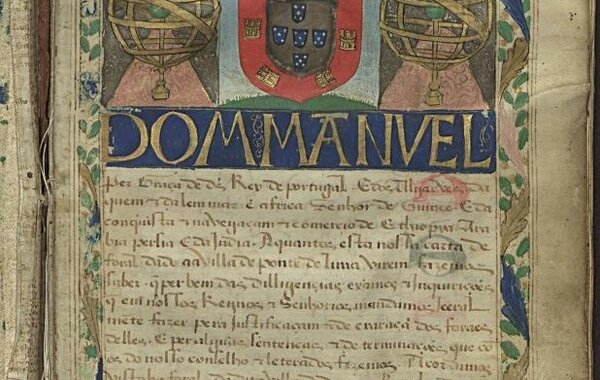 DOM MANVEL
per Graça de ds Rey de portugal. E dos Algarves da
quem & da lem mar. E africa Senhor de Guinee. E da
conquista & navegaçam & comercio de Ethiopya Ara
bia persia E da India. A quantos esta nossa carta de
foral dado aa villa de ponte de lima virem fazemos
saber. q per bem das dilligencias exames & Inquirições
q em nossos Regnos & Senhorios mandamos jeeral
mẽte fazer pera justificaçam & decraraçã dos foraes
delles. E per alguas sentenças & determinações que cõ
os do nosso conselho & leterados fezemos. Acordamos